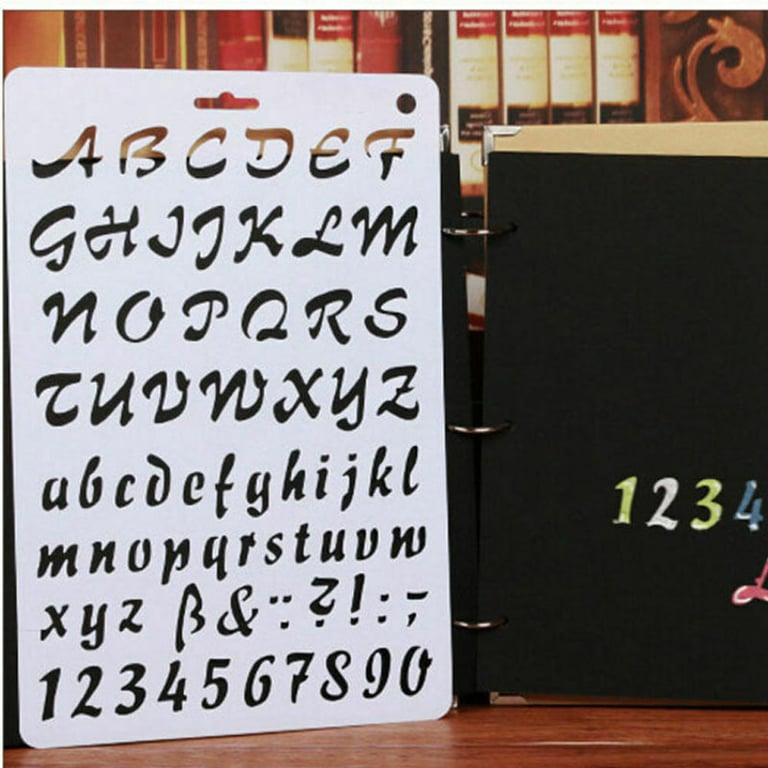 ABCDEF
GHIJKLM
NOPQRS
TUVWXYZ
abcdefghijkl
mnopqrstuvw
xyz ß&:: ?!:;-
1234567890
1234
L